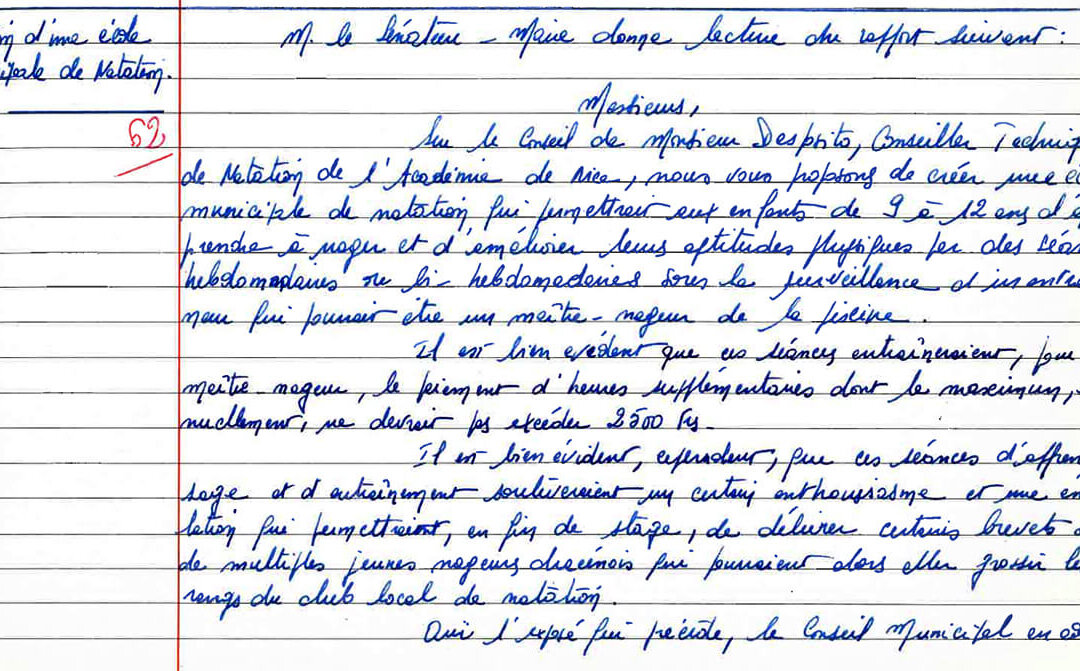 n d'une école
ipale de Natation.
62
M. le Sénateur - Maire donne lecture du rapport suivant :
Messieurs,
Sur le Conseil de Monsieur Desprito, Conseiller Techniq
de Natation de l'Académie de Nice, nous vous proposons de créer une éc
municipale de natation qui permettrait aux enfants de 9 à 12 ans d'a
prendre à nager et d'améliorer leurs aptitudes physiques par des séan
hebdomadaires ou bi-hebdomadaires sous la surveillance d'un entraî
neur qui pourrait être un maître-nageur de la piscine.
Il est bien évident que ces séances entraîneraient, pour
maître-nageur, le paiement d'heures supplémentaires dont le maximum,
nuellement, ne devrait pas excéder 2500 Frs.
Il est bien évident, cependant, que ces séances d'appren
sage et d'entraînement soulèveraient un certain enthousiasme et une ém
lation qui permettraient, en fin de stage, de délivrer certains brevets
de multiples jeunes nageurs dracénois qui pourraient alors aller grossir le
rangs du club local de natation.
Oui l'exposé qui précède, le Conseil Municipal en